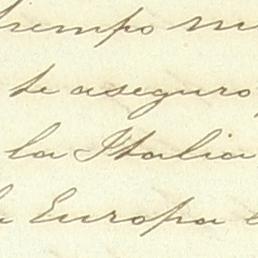 tiempo
te aseguro
la Italia
Europa